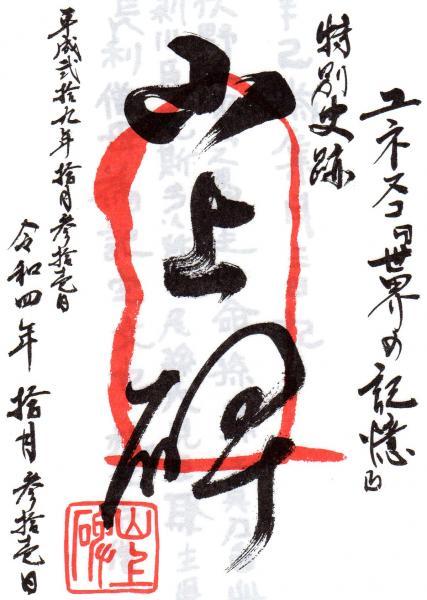 ユネスコ「世界の記憶」
特別史跡
山上碑
平成弐拾九年拾月参拾壱日
令和四年拾月参拾壱日
山上碑